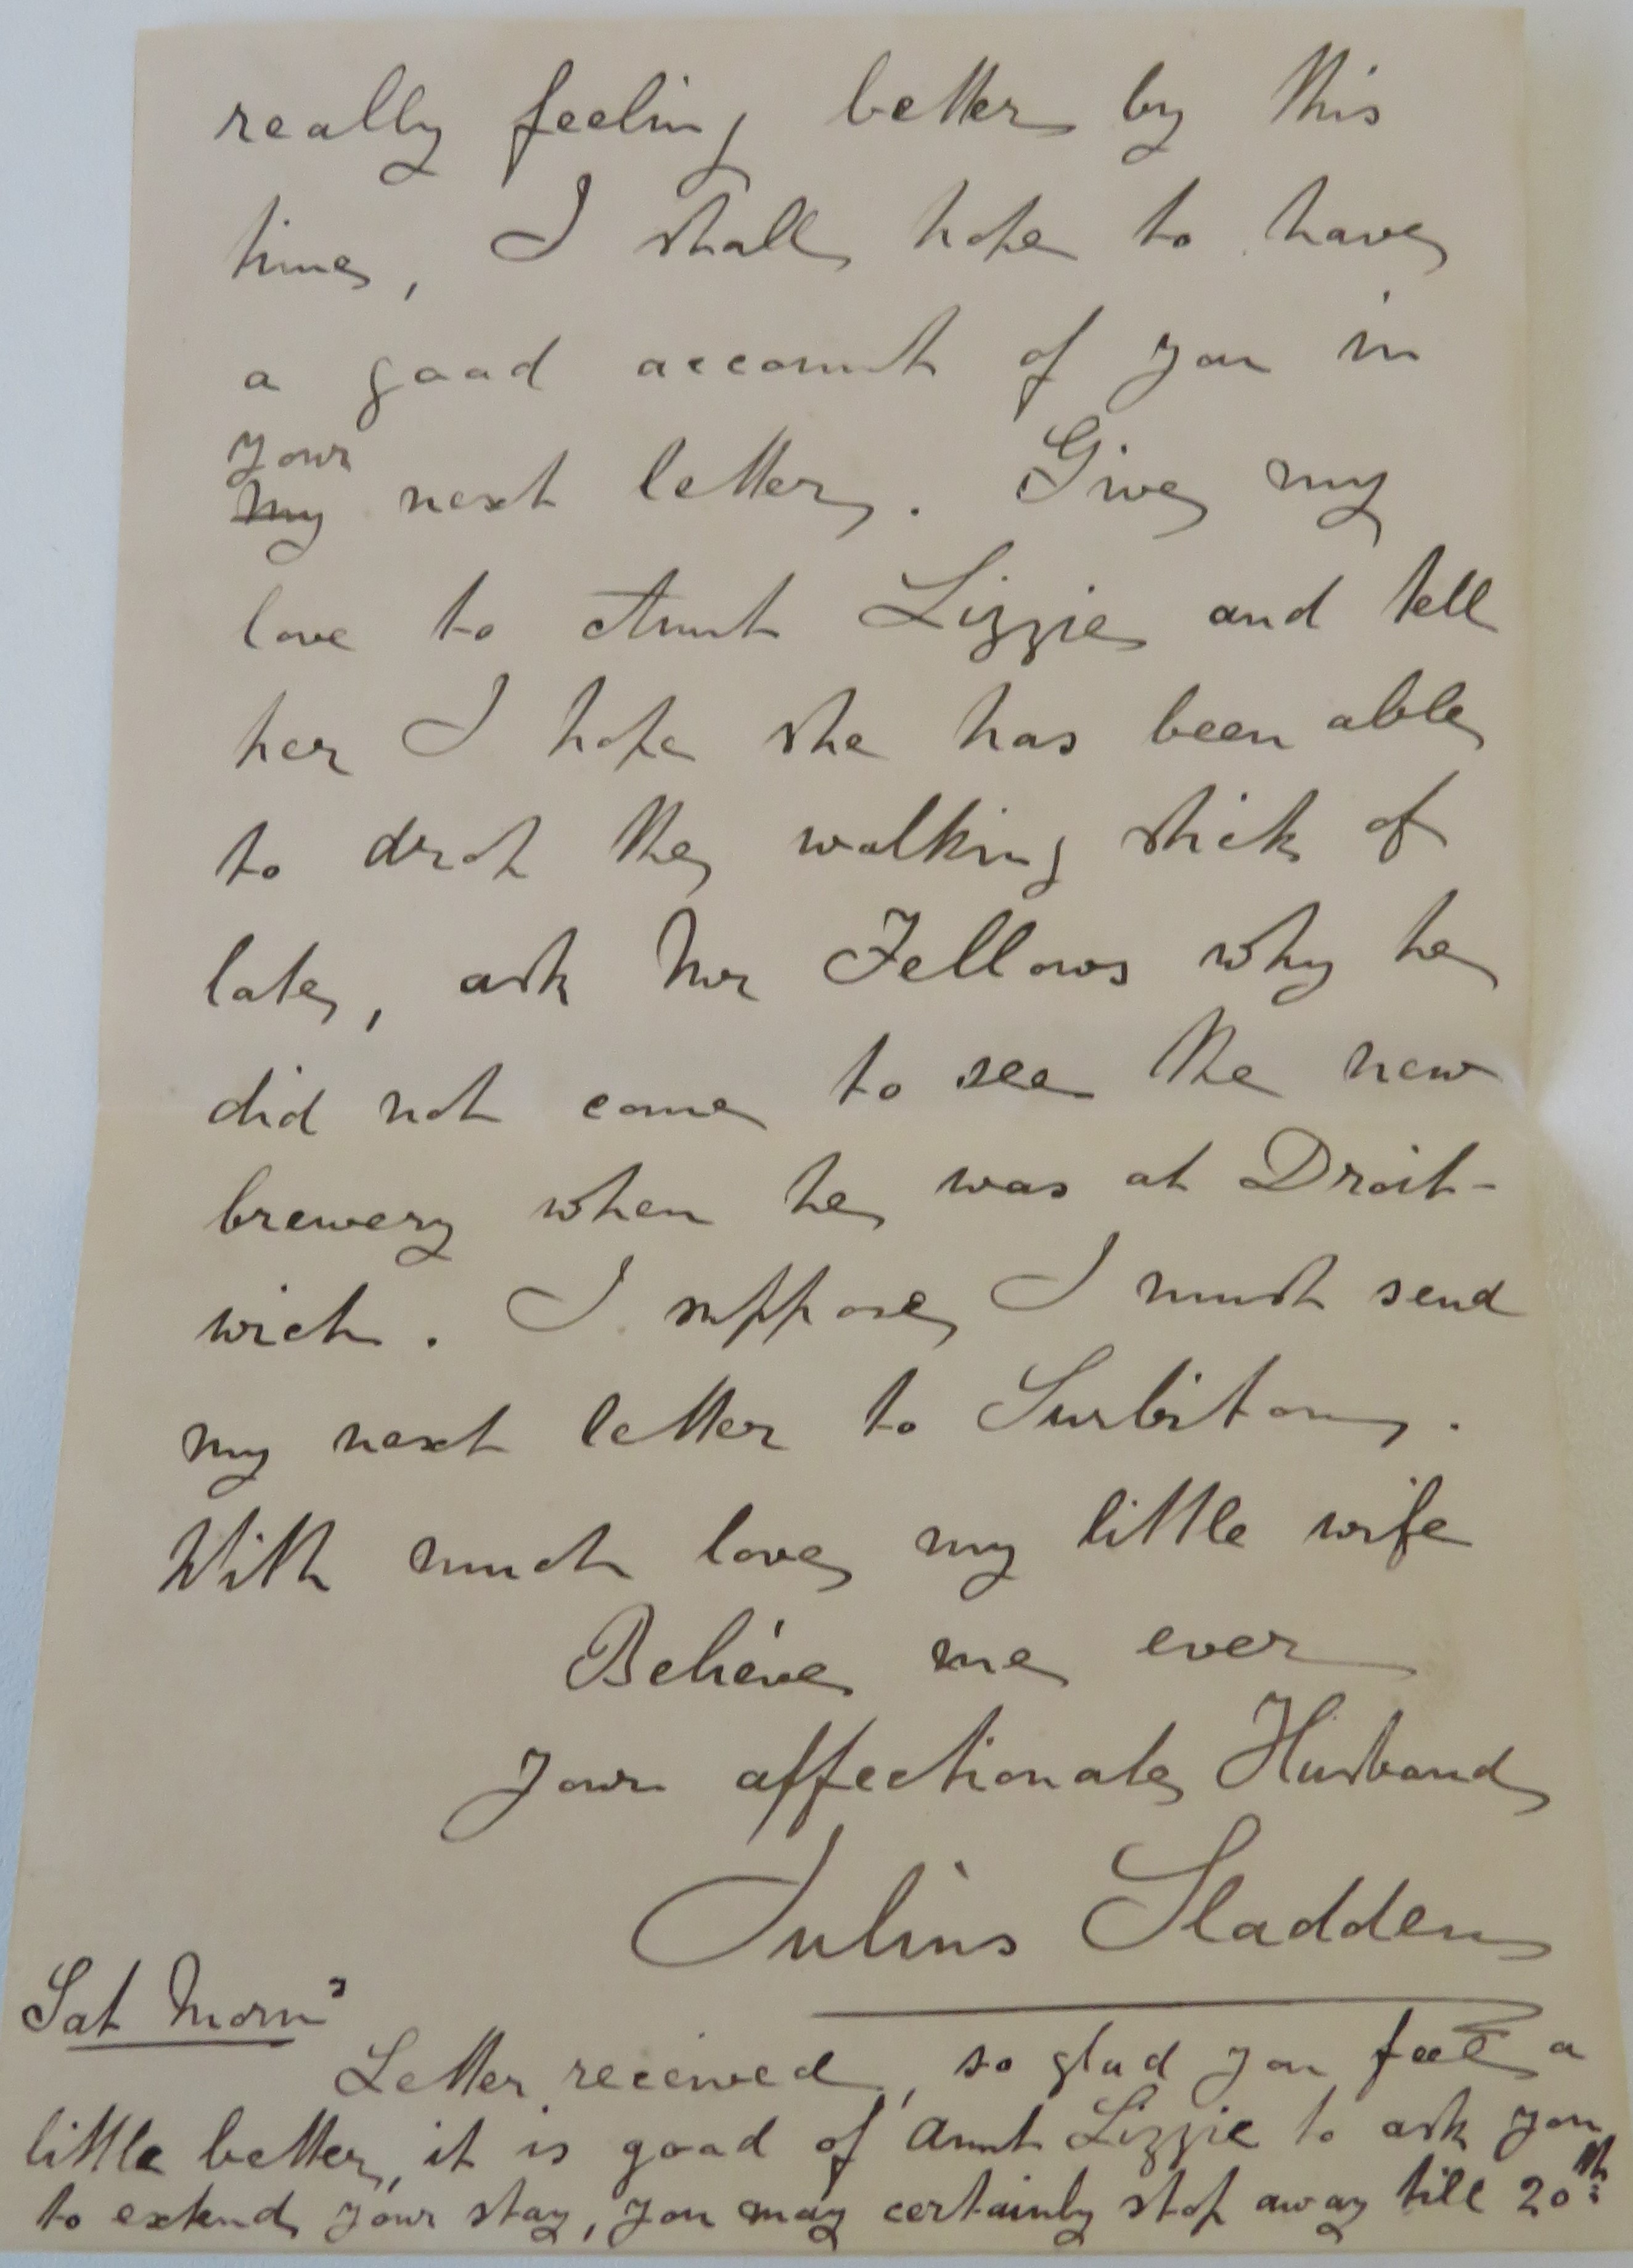 really feeling better by this
time, I shall hope to have
a good account of you in
your
my next letter. Give my
love to Aunt Lizzie and tell
her I hope she has been able
to drop the walking stick of
late, ask Mr Fellows why he
did not come to see the new
brewery when he was at Droit-
wich. I suppose I must send
my next letter to Surbiton.
With much love my little wife
Believe me ever
Your affectionate Husband
Julius Sladden
Sat Morng
Letter received, so glad you feel a
little better, it is good of Aunt Lizzie to ask you
to extend your stay, you may certainly stop away till 20th